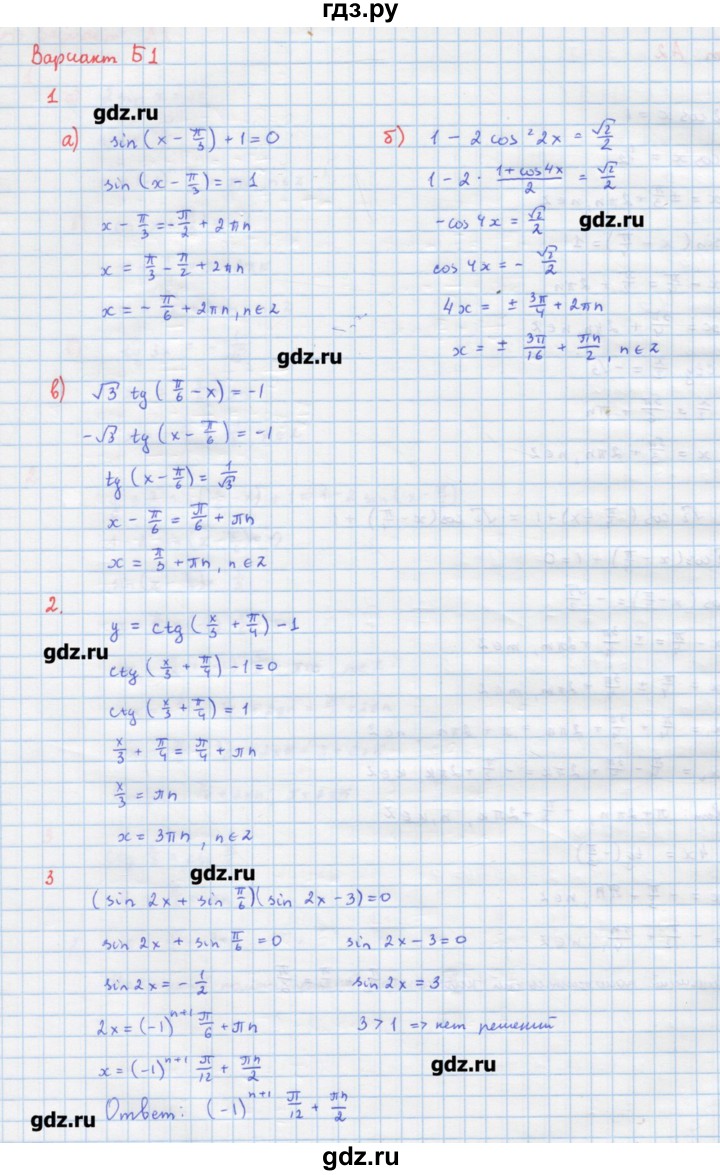 гдз.ру
Вариант Б1
1
gdz.ru
а) sin(x − π/3) + 1 = 0
sin(x − π/3) = −1
x − π/3 = −π/2 + 2πn
x = π/3 − π/2 + 2πn
x = −π/6 + 2πn, n∈Z
б) 1 − 2 cos² 2x = √2/2
1 − 2 · (1 + cos 4x)/2 = √2/2
gdz.ru
−cos 4x = √2/2
cos 4x = − √2/2
4x = ± 3π/4 + 2πn
x = ± 3π/16 + πn/2, n∈Z
gdz.ru
в) √3 tg(π/6 − x) = −1
−√3 tg(x − π/6) = −1
tg(x − π/6) = 1/√3
x − π/6 = π/6 + πn
x = π/3 + πn, n∈Z
2.
y = ctg(x/3 + π/4) − 1
gdz.ru
ctg(x/3 + π/4) − 1 = 0
ctg(x/3 + π/4) = 1
x/3 + π/4 = π/4 + πn
x/3 = πn
x = 3πn, n∈Z
gdz.ru
3
(sin 2x + sin π/6)(sin 2x − 3) = 0
sin 2x + sin π/6 = 0
sin 2x = −1/2
2x = (−1)ⁿ⁺¹ π/6 + πn
x = (−1)ⁿ⁺¹ π/12 + πn/2
sin 2x − 3 = 0
sin 2x = 3
3 > 1 => нет решений
gdz.ru
Ответ: (−1)ⁿ⁺¹ π/12 + πn/2
gdz.ru
gdz.ru